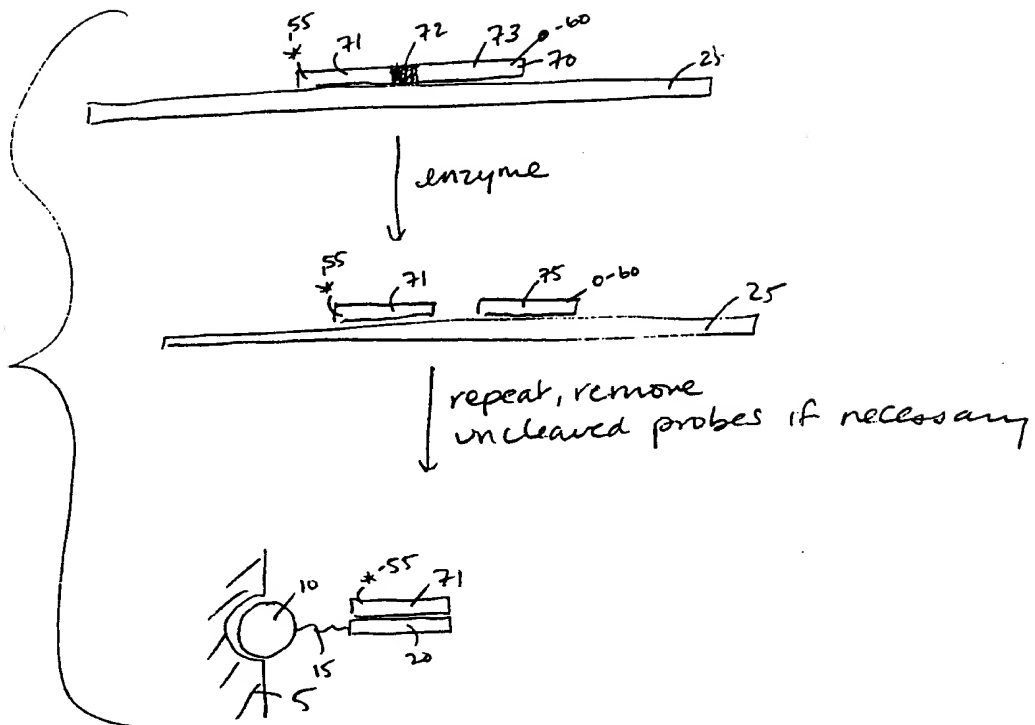 55 71 72 73 60
* 70 25
enzyme
55 71 75 0-60
* 25
repeat, remove
uncleaved probes if necessary
10 *-55 71
15 20
5